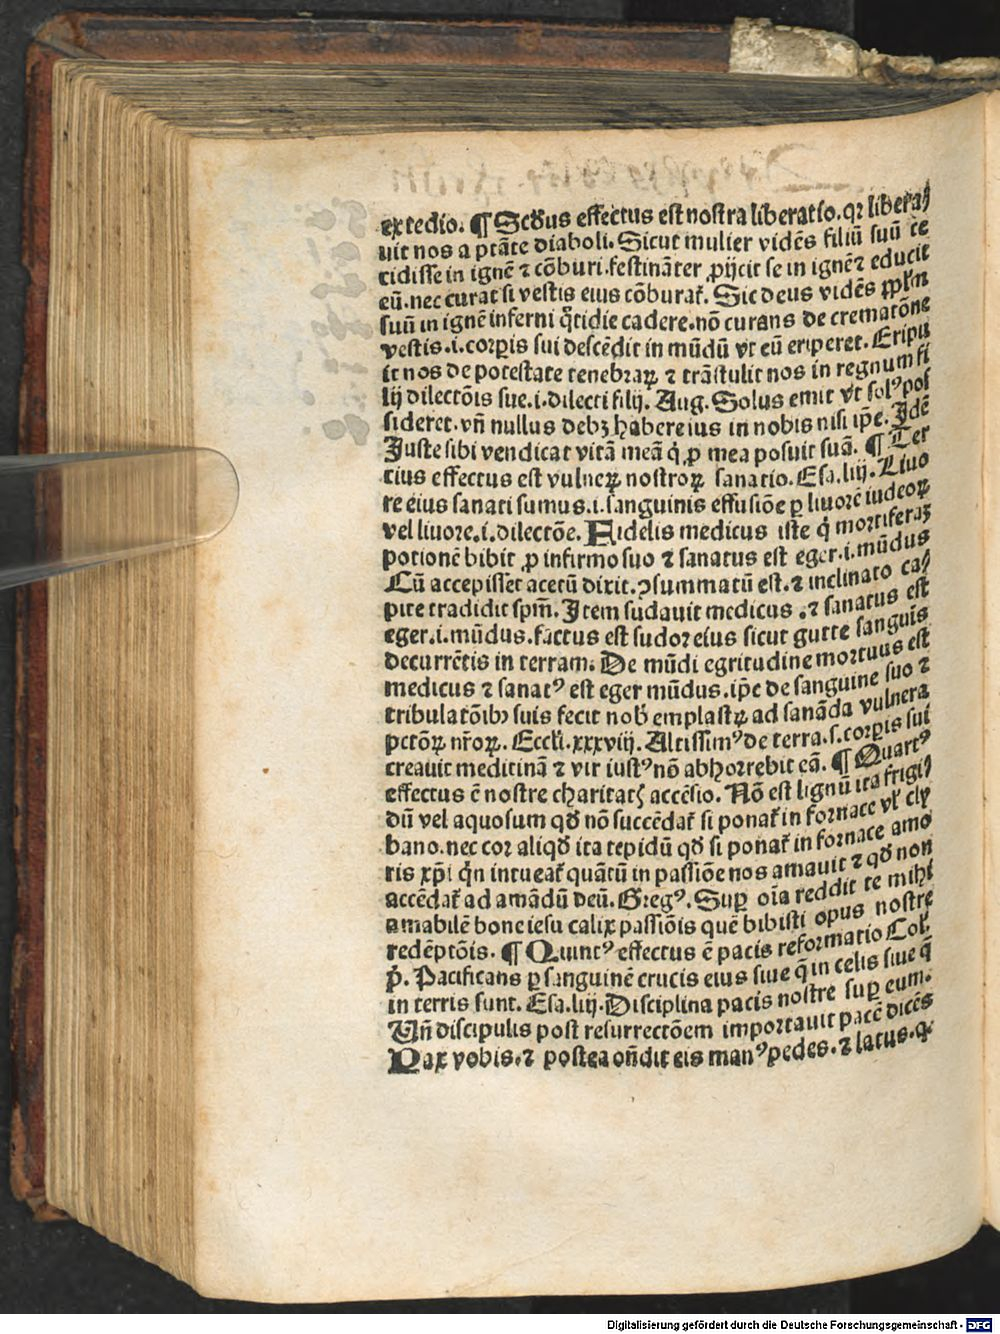 ex tedio. ¶ Scđus effectus est nostra liberatio. qꝛ libera⸗
uit nos a ptāte diaboli. Sicut mulier vidēs filiū suū ce
cidisse in ignē ⁊ cōburi. festināter ꝓijcit se in ignē ⁊ educit
eū. nec curat si vestis eius cōburat᷑. Sic deus vidēs ppl̄m
suū in ignē inferni q̊tidie cadere. nō curans de crematōne
vestis .i. corꝑis sui descēdit in mūdū vt eū eriperet. Eripu
it nos de potestate tenebraꝝ ⁊ trāstulit nos in regnum fi
lij dilectōis sue .i. dilecti filij. Aug. Solus emit vt solꝰ pos
sideret. vn̄ nullus debꝫ habere ius in nobis nisi ip̄e. Idē
Iuste sibi vendicat vitā meā q̇ ꝓ mea posuit suā. ¶ Ter
cius effectus est vulneꝝ nostroꝝ sanatio. Esa. liij. Liuo
re eius sanati sumus .i. sanguinis effusiōe ꝑ liuorē iudeoꝝ
vel liuore .i. dilectōe. Fidelis medicus iste q̇ mortiferaꝫ
potionē bibit ꝓ infirmo suo ⁊ sanatus est eger .i. mūdus
Cū accepisset acetū dixit. ꝯsummatū est. ⁊ inclinato ca⸗
pite tradidit spm̄. Item sudauit medicus . ⁊ sanatus est
eger .i. mūdus. factus est sudor eius sicut gutte sanguīs
decurrētis in terram. De mūdi egritudine mortuus est
medicus ⁊ sanatꝰ est eger mūdus. ip̄e de sanguine suo ⁊
tribulatōibꝫ suis fecit nob̄ emplastꝝ ad sanāda vulnera
pctōꝝ nr̄oꝝ. Eccli. xxxviij. Altissimꝰ de terra .s. corꝑis sui
creauit medicinā ⁊ vir iustꝰ nō abhorrebit eā. ¶ Quartꝰ
effectus ē nostre charitatꝭ accēsio. Nō est lignū ita frigi⸗
dū vel aquosum qđ nō succēdat᷑ si ponat᷑ in fornace vl̓ cly
bano. nec cor aliqđ ita tepidū qđ si ponat᷑ in fornace amo
ris xp̄i q̇n intueat᷑ quātū in passiōe nos amauit ⁊ qđ non
accēdat᷑ ad amādū deū. Gregꝰ. Suꝑ oīa reddit te mihi
amabilē bone iesu calix passiōis quē bibisti opus nostre
redēptōis. ¶ Quintꝰ effectus ē pacis reformatio Col.
p̄. Pacificans ꝑ sanguinē crucis eius siue q̄ in celis siue q̄
in terris sunt. Esa. liij. Disciplina pacis nostre suꝑ eum.
Vn̄ discipulis post resurrectōem importauit pacē dicēs
Pax vobis. ⁊ postea on̄dit eis manꝰ pedes. ⁊ latus. q.
Digitalisierung gefördert durch die Deutsche Forschungsgemeinschaft - DFG